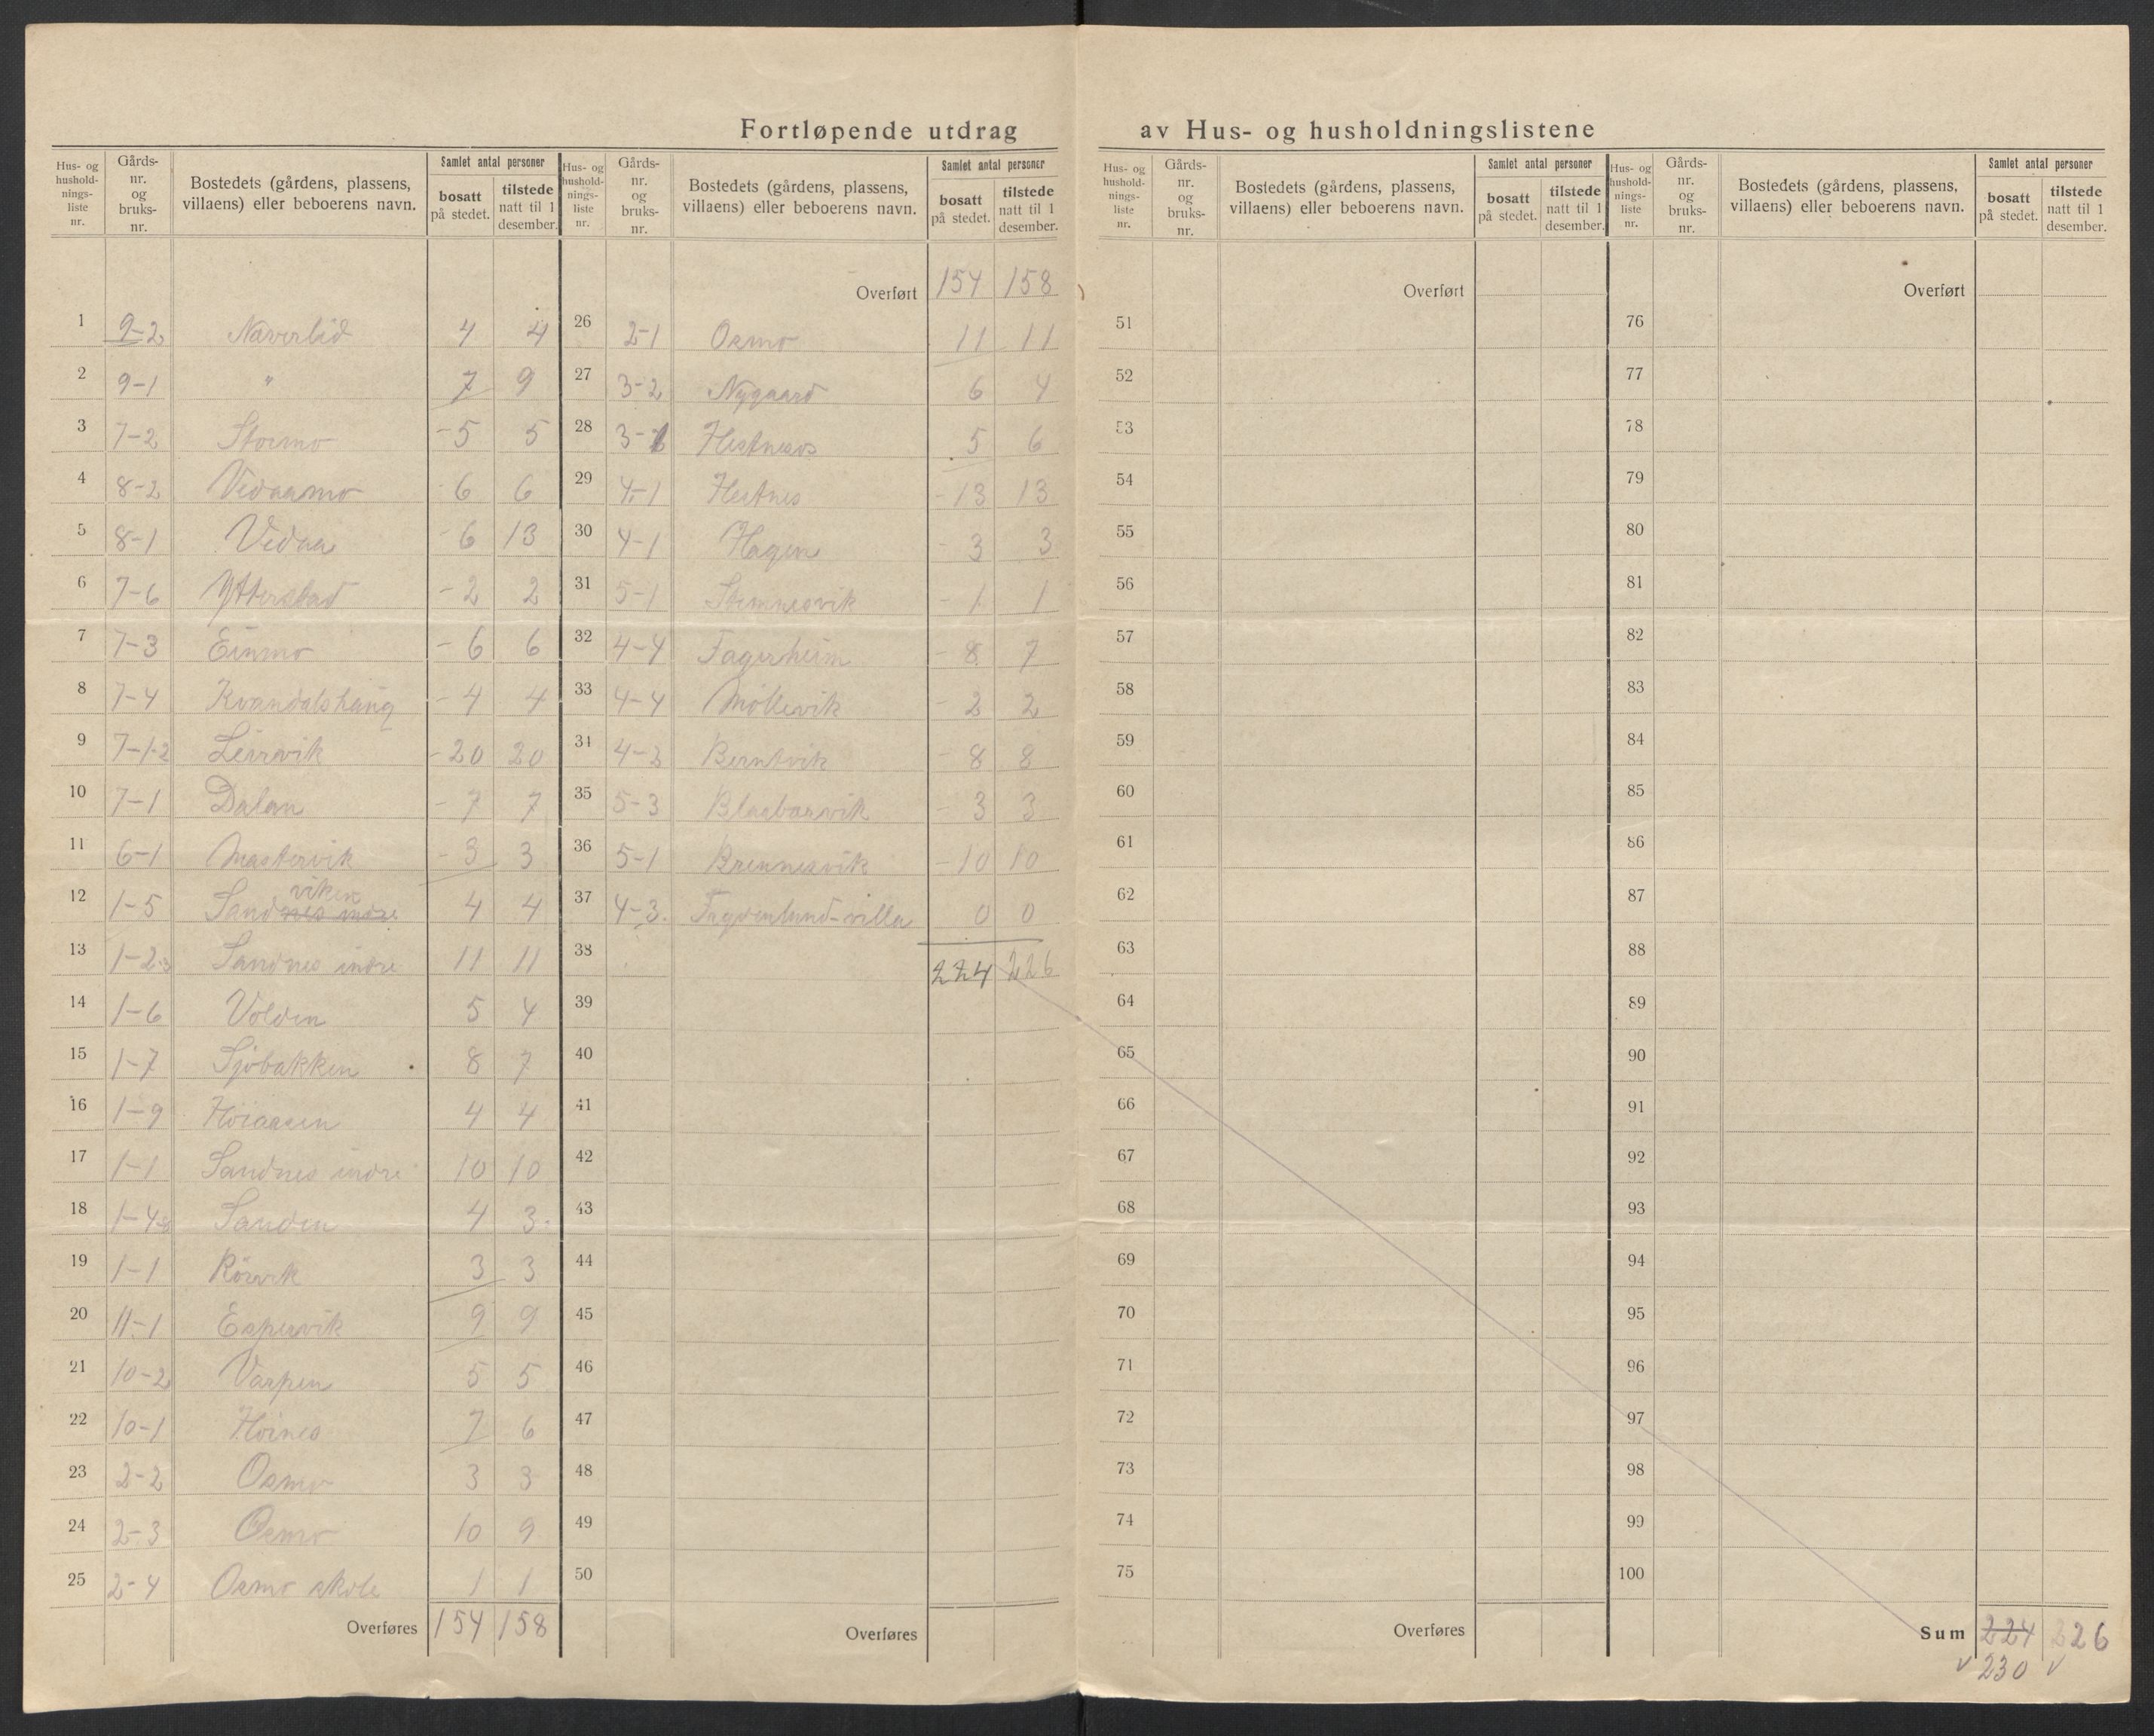 Fortløpende utdrag av Hus- og husholdningslistene
Hus- og hushold-nings-liste nr. | Gårds-nr. og bruks-nr. | Bostedets (gårdens, plassens, villaens) eller beboerens navn. | Samlet antal personer | bosatt på stedet. | tilstede natt til 1 desember.
1 9-2 Naverlid 4 4
2 9-1 " 7 9
3 7-2 Stormo -5 5
4 8-2 Vedaamo -6 6
5 8-1 Vedaa -6 13
6 7-6 Ytterstad -2 2
7 7-3 Einmo -6 6
8 7-4 Kvandalshaug -4 4
9 7-1-2 Leirvik -20 20
10 7-1 Dalan -7 7
11 6-1 Mastervik -3 3
12 1-5 Sandnes indre viken 4 4
13 1-2-3 Sandnes indre 11 11
14 1-6 Volden 5 4
15 1-7 Sjöbakken 8 7
16 1-9 Höiaasen 4 4
17 1-1 Sandnes indre 10 10
18 1-4-8 Sanden 4 3
19 1-1 Rörvik 3 3
20 11-1 Espervik 9 9
21 10-2 Varpen 5 5
22 10-1 Höines 7 6
23 2-2 Osmo 3 3
24 2-3 Osmo 10 9
25 2-4 Osmo skole 1 1
Overføres 154 158
Hus- og hushold-nings-liste nr. | Gårds-nr. og bruks-nr. | Bostedets (gårdens, plassens, villaens) eller beboerens navn. | Samlet antal personer | bosatt på stedet. | tilstede natt til 1 desember.
Overført 154 158
26 2-1 Osmo 11 11
27 3-2 Nygaard 6 4
28 3-1 Hestnesos 5 6
29 4-1 Hestnes -13 13
30 4-1 Hagen -3 3
31 5-1 Stemnesvik -1 1
32 4-4 Fagerheim -8 7
33 4-4 Möllevik -2 2
34 4-2 Berntvik -8 8
35 5-3 Blaabærvik -3 3
36 5-1 Brennesvik -10 10
37 4-3 villa 0 0
38 224 226
39
40
41
42
43
44
45
46
47
48
49
50
Overføres
Hus- og hushold-nings-liste nr. | Gårds-nr. og bruks-nr. | Bostedets (gårdens, plassens, villaens) eller beboerens navn. | Samlet antal personer | bosatt på stedet. | tilstede natt til 1 desember.
Overført
51
52
53
54
55
56
57
58
59
60
61
62
63
64
65
66
67
68
69
70
71
72
73
74
75
Overføres
Hus- og hushold-nings-liste nr. | Gårds-nr. og bruks-nr. | Bostedets (gårdens, plassens, villaens) eller beboerens navn. | Samlet antal personer | bosatt på stedet. | tilstede natt til 1 desember.
Overført
76
77
78
79
80
81
82
83
84
85
86
87
88
89
90
91
92
93
94
95
96
97
98
99
100
Sum 224 226
230